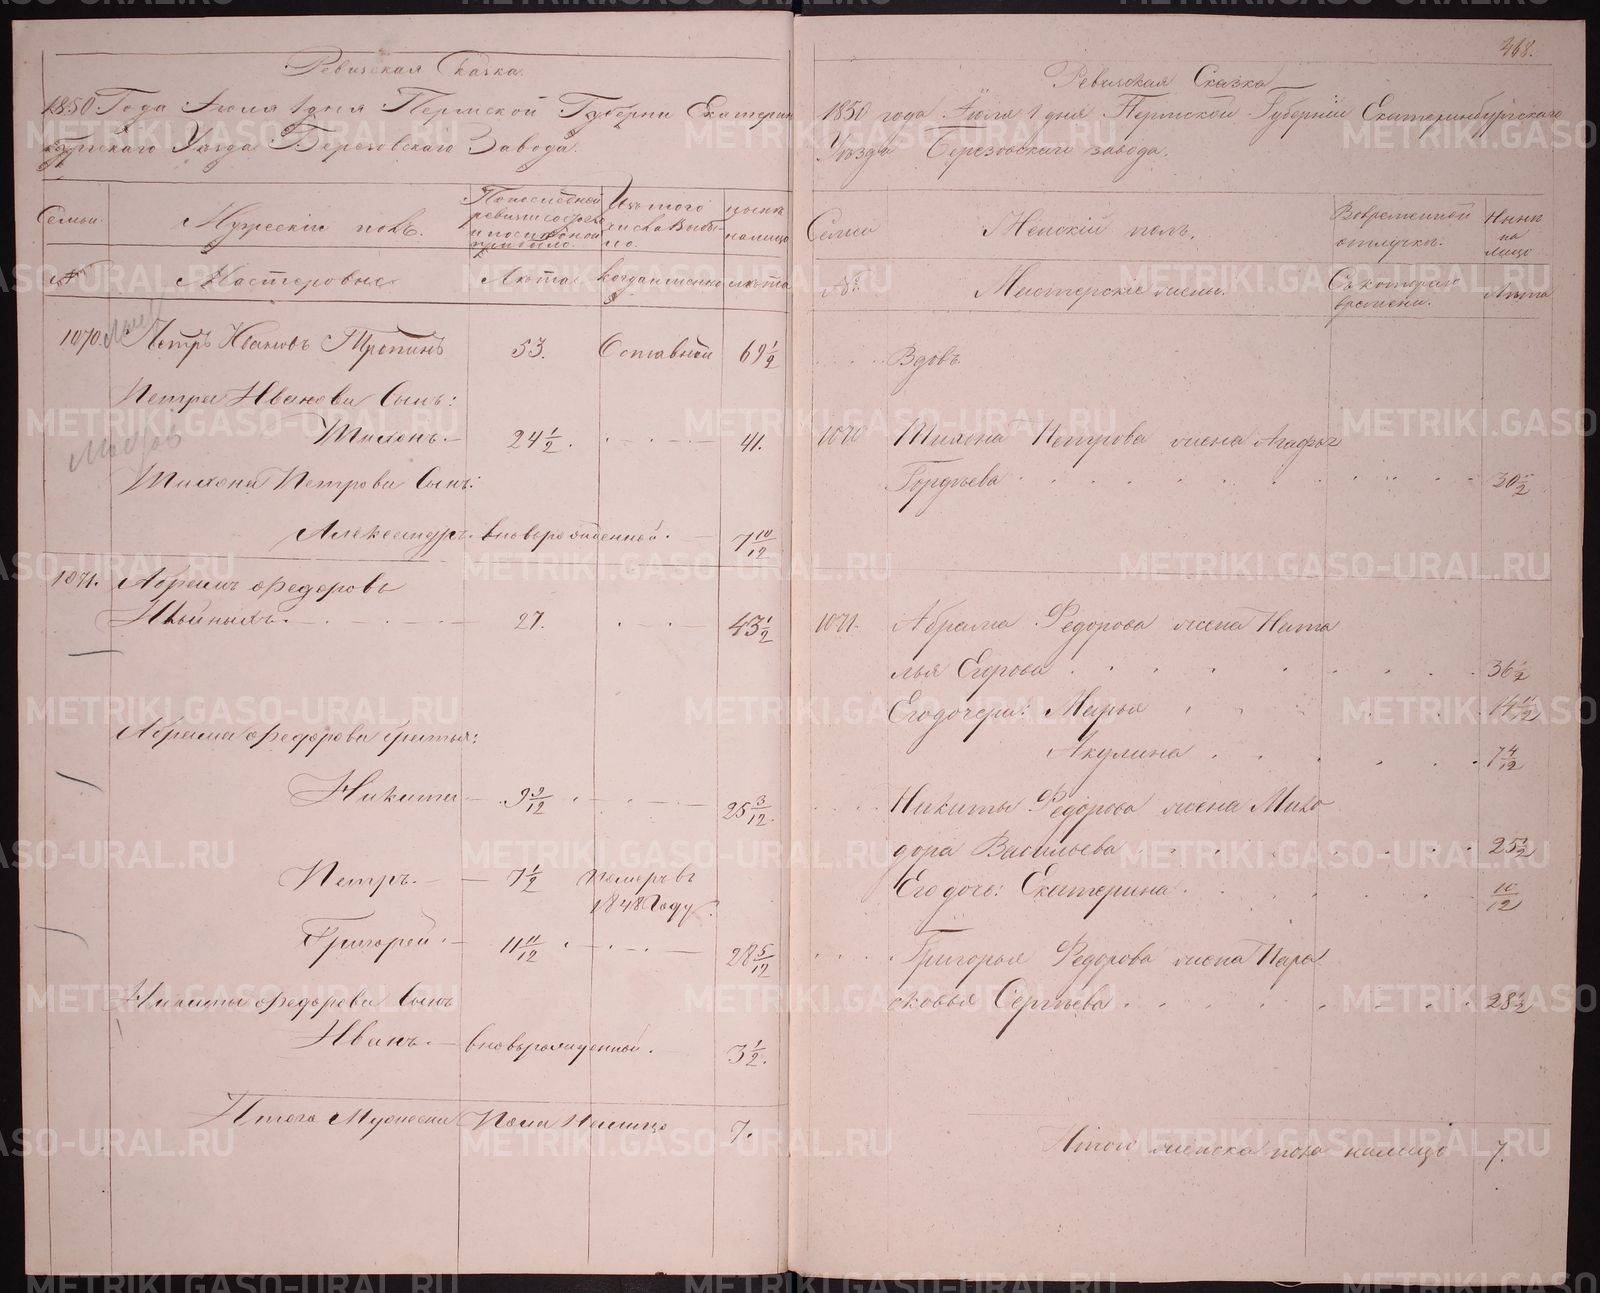 Ревизская Сказка.
1850 Года Іюля 1 дня Пермской Губерни Екатерин
бургскаго Уезда Березовскаго Завода.
Семьи. Мужескій полъ. По последней ревизии состоя и после оной прибыло. Изъ того числа выбыло. ныне на лицо
№ Мастеровые Лѣта когда именно лѣта
1070. Петръ Ивановъ Тропинъ 53. Оставной 69 1/2
Петра Иванова Сынъ:
Тихонъ 24 1/2. 41.
Тихона Петрова Сынъ:
Александръ вновьрожденной. 7 10/12
1071. Абрамъ Федоровъ
27. 43 1/2
Абрама Федорова братья:
Никита 9 9/12 25 3/12.
Петръ. 7 1/2 померъ въ
1848 Году.
Григорей 11 11/12 28 5/12
Никиты Федорова Сынъ
Иванъ. вновьрожденной. 3 1/2.
Итого Мужеска Пола Налицо 7.
468.
Ревизская Сказка
1850 года Іюля 1 дня Пермской Губерніи Екатеринбургскаго
Уѣзда Березовскаго завода.
Семьи Женскій полъ. Во временной отлучке. Ныне на лицо
№ Мастерские жены. Съ котораго времени. Лѣта
Вдовъ.
1070 Тихона Петрова жена Агафья
Гордѣева 30 1/2
1071. Абрама Федорова жена Ната
лья Егорова 36 1/2
Его дочери: Марья 14 11/12
Акулина 7 4/12
Никиты Федорова жена Мико
дора Васильева 25 1/2
Его дочь: Екатерина 10/12
Григорья Федорова жена Пара
сковья Сергѣева 28 1/2
Итого женска пола налицо 7.
METRIKI.GASO-URAL.RU